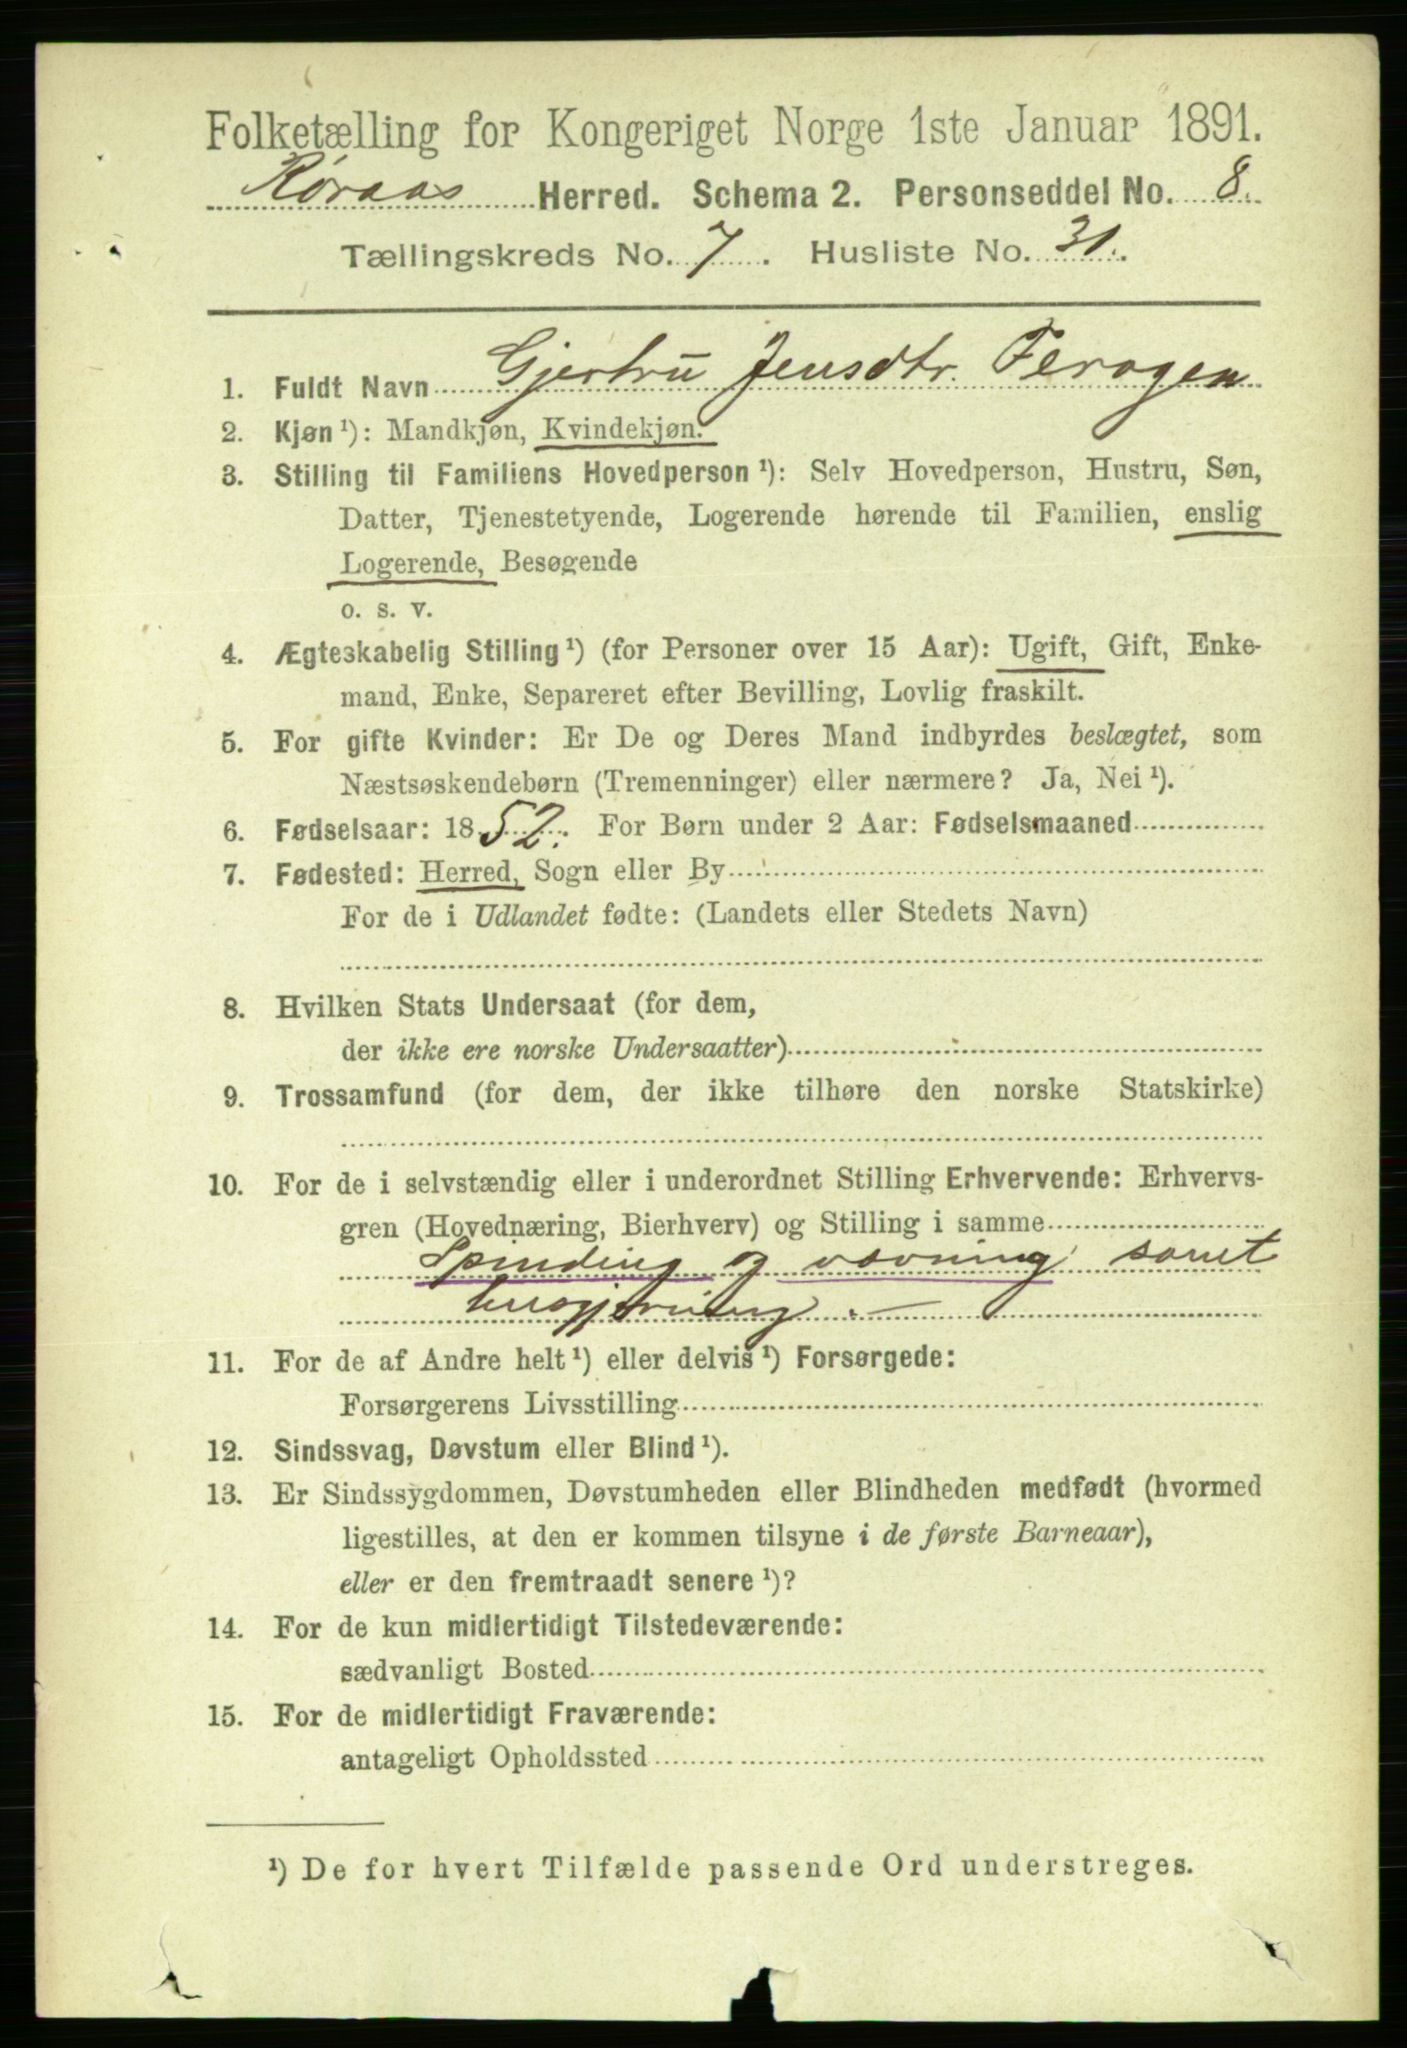 Folketælling for Kongeriget Norge 1ste Januar 1891.
Røraas Herred. Schema 2. Personseddel No. 8.
Tællingskreds No. 7. Husliste No. 31.
1. Fuldt Navn Gjertru Jensdtr. Feragen
2. Kjøn ¹): Mandkjøn, Kvindekjøn.
3. Stilling til Familiens Hovedperson ¹): Selv Hovedperson, Hustru, Søn,
Datter, Tjenestetyende, Logerende hørende til Familien, enslig
Logerende, Besøgende
o. s. v.
4. Ægteskabelig Stilling ¹) (for Personer over 15 Aar): Ugift, Gift, Enke-
mand, Enke, Separeret efter Bevilling, Lovlig fraskilt.
5. For gifte Kvinder: Er De og Deres Mand indbyrdes beslægtet, som
Næstsøskendebørn (Tremenninger) eller nærmere? Ja, Nei ¹).
6. Fødselsaar: 1852. For Børn under 2 Aar: Fødselsmaaned
7. Fødested: Herred, Sogn eller By
For de i Udlandet fødte: (Landets eller Stedets Navn)
8. Hvilken Stats Undersaat (for dem,
der ikke ere norske Undersaatter)
9. Trossamfund (for dem, der ikke tilhøre den norske Statskirke)
10. For de i selvstændig eller i underordnet Stilling Erhvervende: Erhvervs-
gren (Hovednæring, Bierhverv) og Stilling i samme
Spinding og vævning samt
husgjerning. —
11. For de af Andre helt ¹) eller delvis ¹) Forsørgede:
Forsørgerens Livsstilling
12. Sindssvag, Døvstum eller Blind ¹).
13. Er Sindssygdommen, Døvstumheden eller Blindheden medfødt (hvormed
ligestilles, at den er kommen tilsyne i de første Barneaar),
eller er den fremtraadt senere ¹)?
14. For de kun midlertidigt Tilstedeværende:
sædvanligt Bosted
15. For de midlertidigt Fraværende:
antageligt Opholdssted
¹) De for hvert Tilfælde passende Ord understreges.